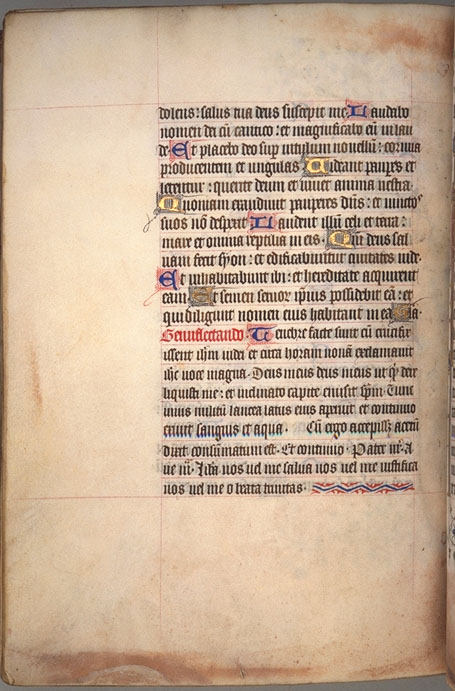 dolens: salus tua deus suscepit me. Laudabo
nomen dei cū cantico: et magnificabo eū in lau
de. Et placebo deo sup uitulum nouellū: cornua
producentem et ungulas. Uideant paupes et
letentur: querite deum et uiuet anima uestra.
Quoniam exaudiuit pauperes dn̄s: et uinctos
suos nō despexit. Laudent illū celi et terra:
mare et omnia reptilia in eis. Qm̄ deus sal
uam faciet syon: et edificabuntur ciuitates iude.
Et inhabitabunt ibi: et hereditate acquirent
eam. Et semen seruor ipsius possidebit eā: et
qui diligunt nomen eius habitant in ea. Gl̄a.
Genuflectando. Tenebre facte sunt cū crucifix
issent ihm iudei et circa horam nonā exclamauit
ihc uoce magna. Deus meus deus meus ut qd dere
liquisti me: et inclinato capite emisit spm. Tunc
unus militū lancea latus eius aperuit et continuo
exiuit sanguis et aqua. Cū ergo accepisset acetū
dixit consūmatum est. Et continuo. Pater nr. A
ue m. libera nos salua nos uel me iustifica
nos uel me o beata trinitas.